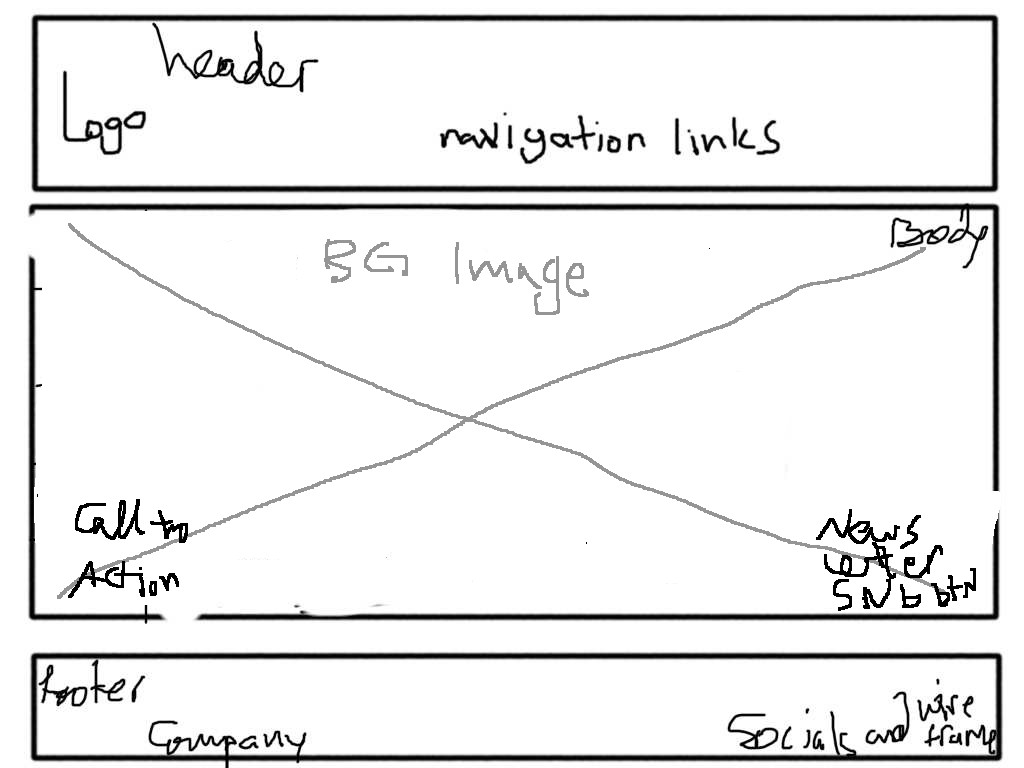 header
Logo
navigation links
Body
BG Image
Call to
Action
News
Letter
SNb btN
footer
Company
Socials and wire
frame